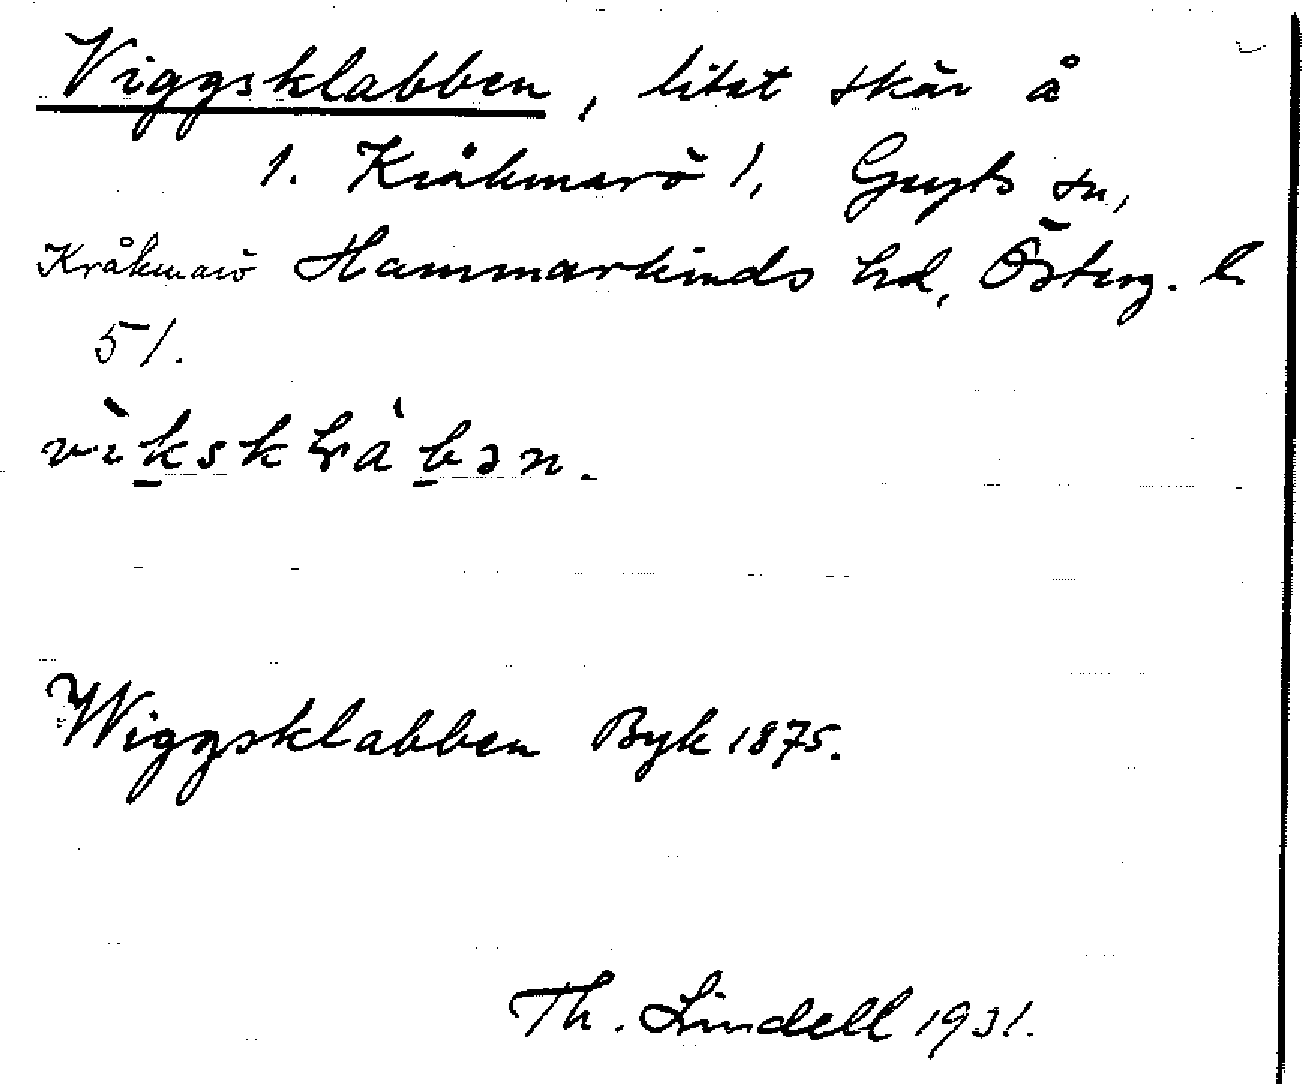 Viggsklabben, litet skär å
1. Kråkmarö 1, Gryts sn,
Kråkmarö Hammarkinds hd, Österg. l.
51.
vìksklàbən.
Wiggsklabben Byk 1875.
Th. Lindell 1931.